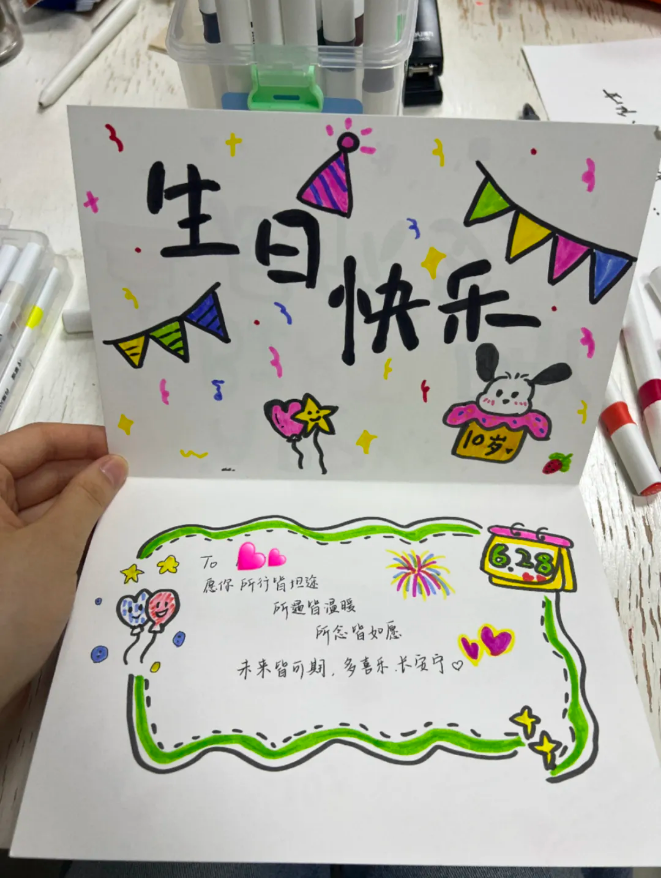 生日快乐
10岁
To
6.28
愿你 所行皆坦途
所遇皆温暖
所念皆如愿
未来皆可期，多喜乐.长安宁♡